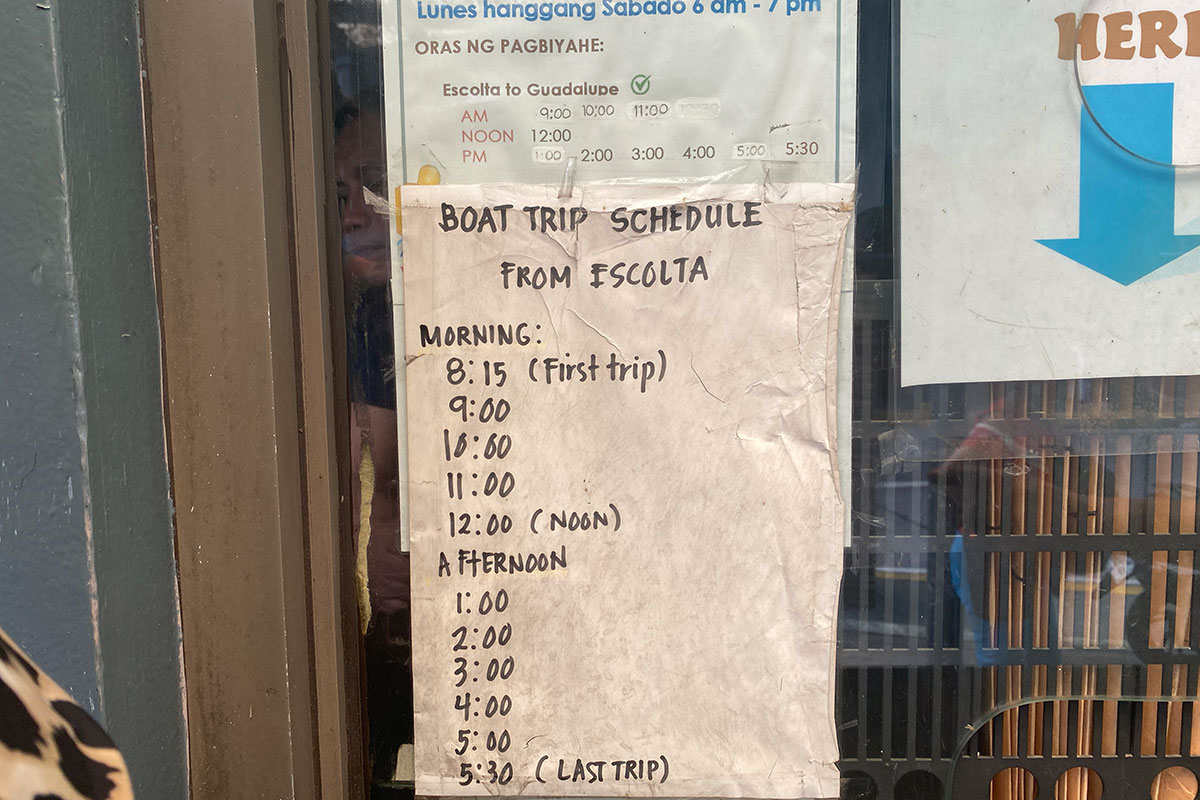 Lunes hanggang Sabado 6 am - 7 pm
ORAS NG PAGBIYAHE:
Escolta to Guadalupe
AM 9:00 10:00 11:00
NOON 12:00
PM 1:00 2:00 3:00 4:00 5:00 5:30
HERE
BOAT TRIP SCHEDULE
FROM ESCOLTA
MORNING:
8:15 (First trip)
9:00
10:00
11:00
12:00 (NOON)
AFTERNOON
1:00
2:00
3:00
4:00
5:00
5:30 (LAST TRIP)